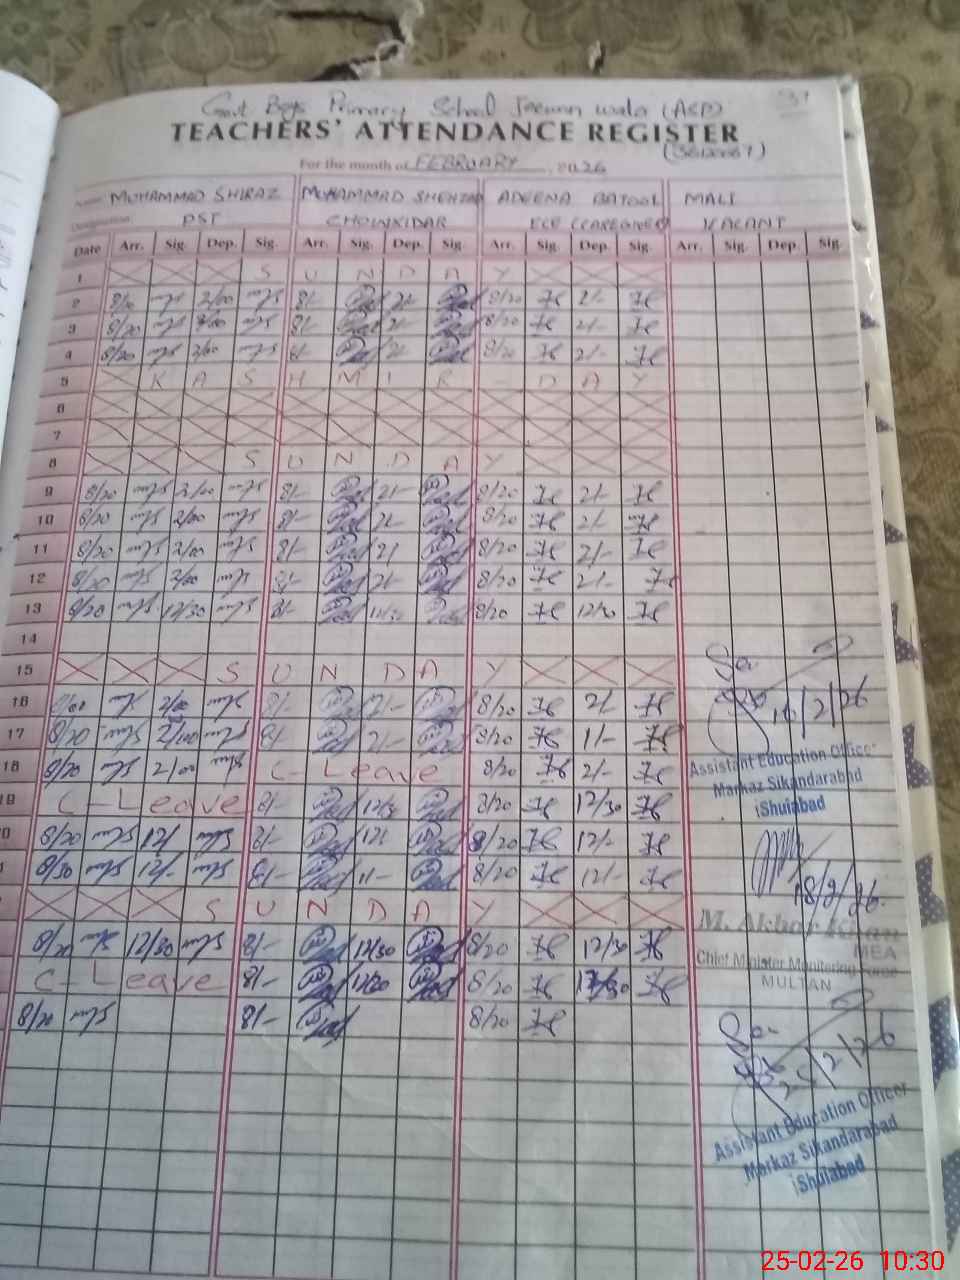 Govt Boys Primary School Jeewan wala (ASP) 37
TEACHERS' ATTENDANCE REGISTER
For the month of FEBRUARY, 2026
Name MUHAMMAD SHIRAZ MUHAMMAD SHEHZAD ADEENA BATOOL MALI
Designation PST CHOWKIDAR ECE (CAREGIVER) VACANT
Date Arr. Sig. Dep. Sig. Arr. Sig. Dep. Sig. Arr. Sig. Dep. Sig. Arr. Sig. Dep. Sig.
1 S U N D A Y
2 8/20 2/00 8/- 2/- 8/20 2/-
3 8/20 2/00 8/- 2/- 8/20 2/-
4 8/20 2/00 8/- 2/- 8/20 2/-
5 K A S H M I R - D A Y
6
7
8 S U N D A Y
9 8/20 2/00 8/- 2/- 8/20 2/-
10 8/20 2/00 8/- 2/- 8/20 2/-
11 8/20 2/00 8/- 2/ 8/20 2/-
12 8/20 2/00 8/- 2/- 8/20 2/-
13 8/20 12/30 8/- 12/30 8/20 12/30
14
15 S U N D A Y
16 2/00 8/- 2/- 8/20 2/-
17 8/20 2/00 8/- 2/- 8/20 1/-
18 8/20 2/00 C - Leave 8/20 2/-
19 C - Leave 8/- 12/30 8/20 12/30
8/20 12/- 8/- 12/- 8/20 12/-
8/30 12/- 8/- 11/- 8/20 12/-
S U N D A Y
8/20 12/30 8/- 12/30 8/20 12/30
C - Leave 8/- 12/30 8/20 12/30
8/20 8/- 8/20
16/2/26
Assistant Education Officer
Markaz Sikandarabad
Shujabad
18/2/26
M. Akbar Khan
MEA
Chief Minister Monitoring Force
MULTAN
25/2/26
Assistant Education Officer
Markaz Sikandarabad
Shujabad
25-02-26 10:30